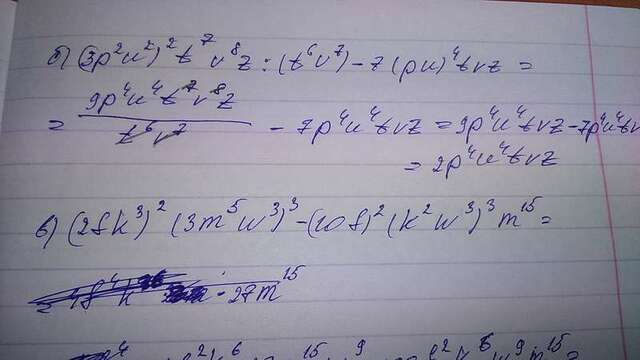 б) (3p²u²)² t⁷ v⁸ z : (t⁶v⁷) - 7 (pu)⁴ tvz =
= 9p⁴u⁴t⁷v⁸z / t⁶v⁷ - 7p⁴u⁴tvz = 9p⁴u⁴tvz - 7p⁴u⁴tv
= 2p⁴u⁴tvz
в) (2fk³)² (3m⁵w³)³ - (10f)² (k²w³)³ m¹⁵ =
= · 27m¹⁵